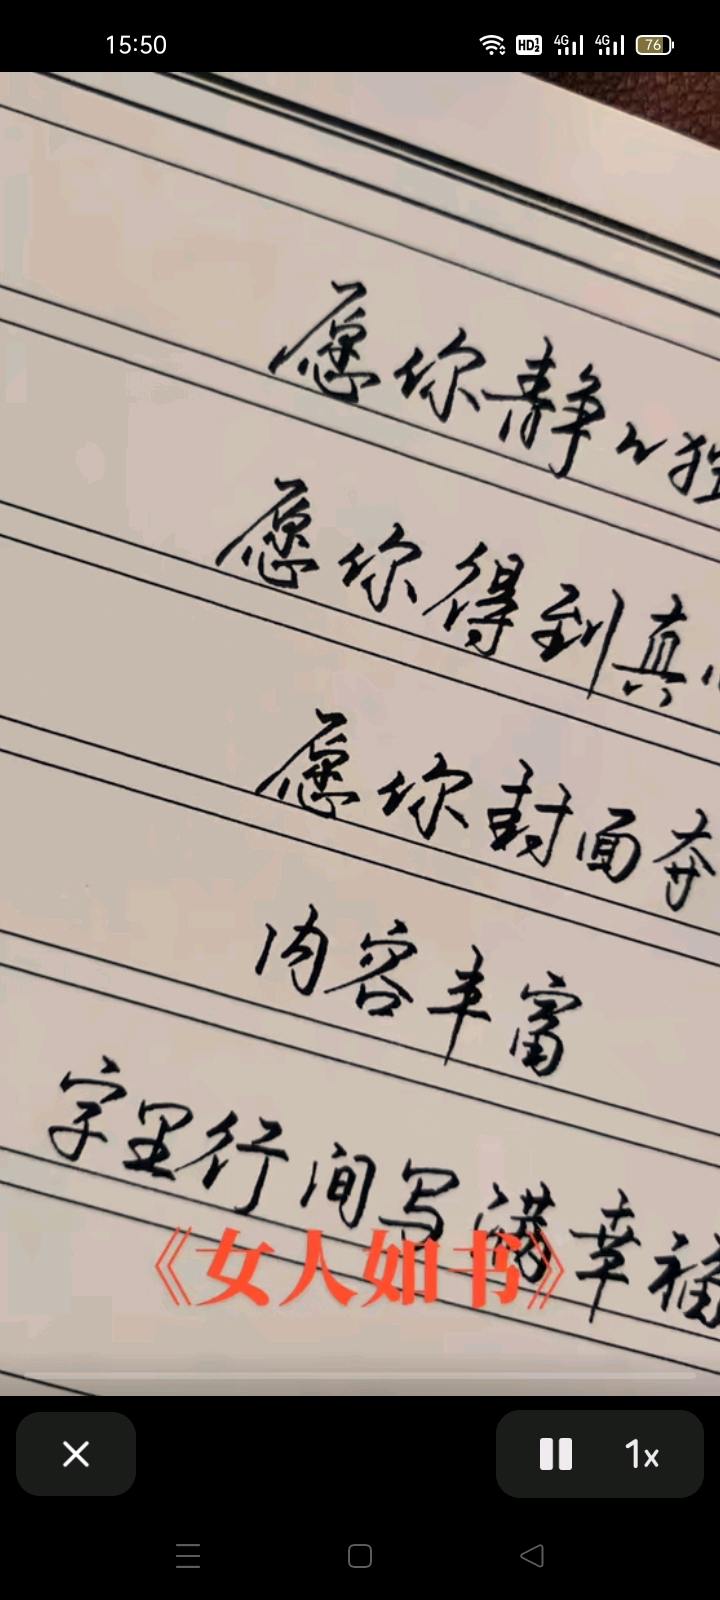 15:50
HD 4G 4G 76
愿你静心独
愿你得到真心
愿你封面奔
内容丰富
字里行间写满幸福
《女人如书》
1x